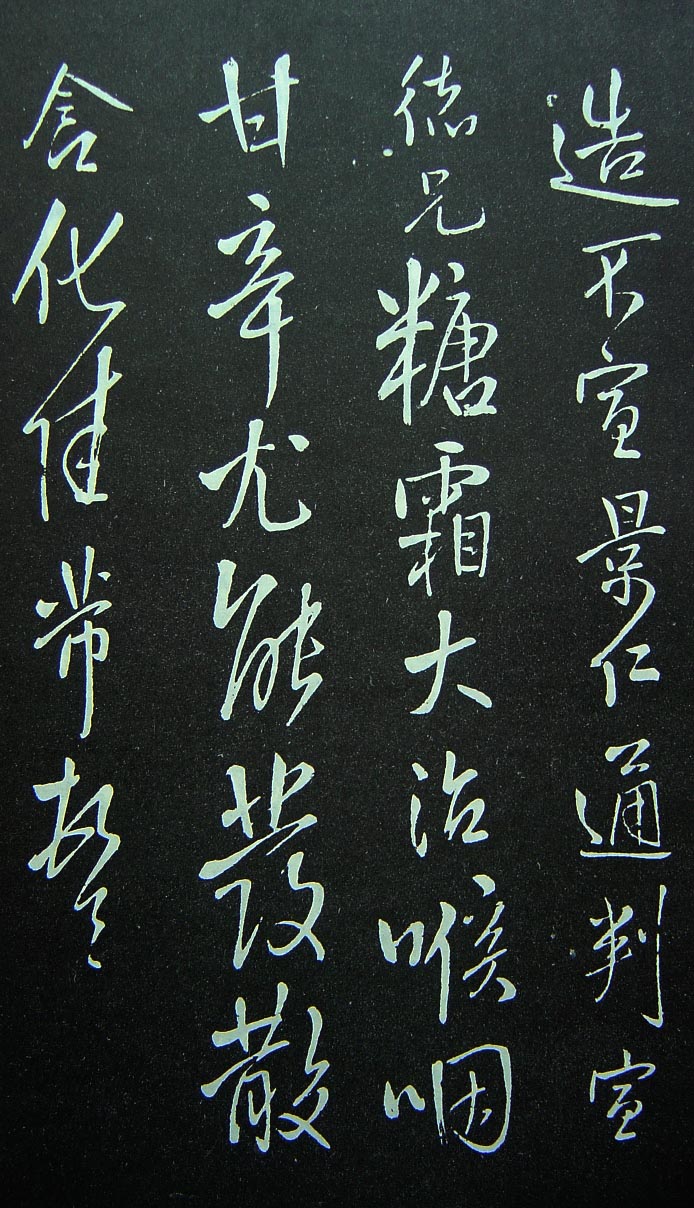 造不宣景仁通判宣
德兄糖霜大治喉咽
甘辛尤能發散
含化佳帶